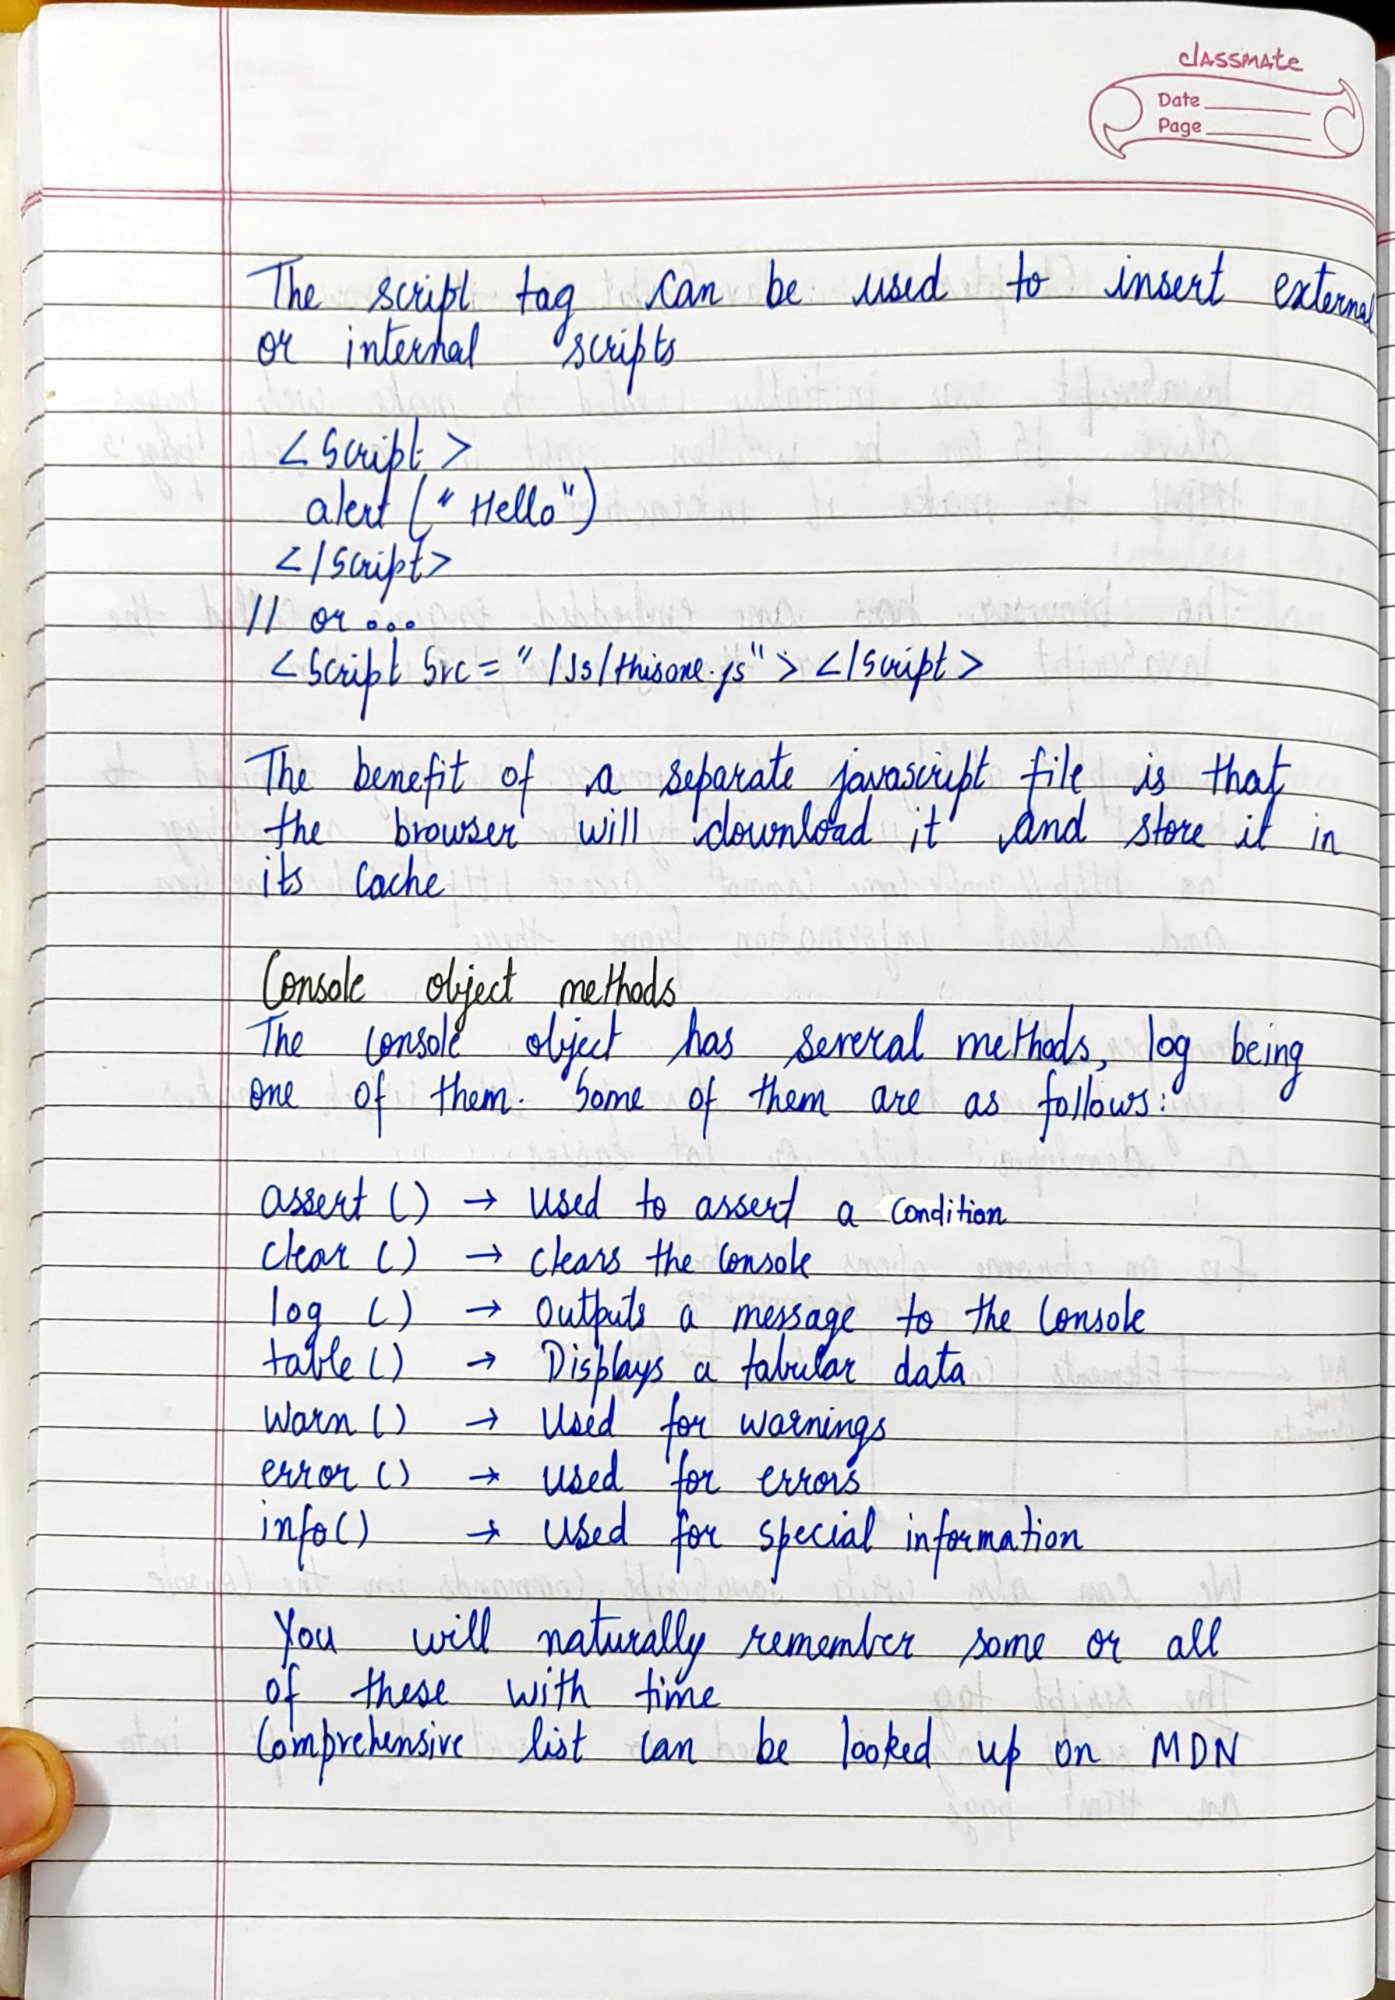 classmate
Date
Page
The script tag can be used to insert external
or internal scripts
<Script>
alert ("Hello")
</Script>
// or ...
<Script Src = "/Js/thisone.js"> </Script>
The benefit of a separate javascript file is that
the browser will download it and store it in
its cache
Console object methods
The console object has several methods, log being
one of them. Some of them are as follows:
assert () → used to assert a condition
clear () → clears the console
log () → Outputs a message to the console
table () → Displays a tabular data
warn () → Used for warnings
error () → used for errors
info () → used for special information
You will naturally remember some or all
of these with time
Comprehensive list can be looked up on MDN